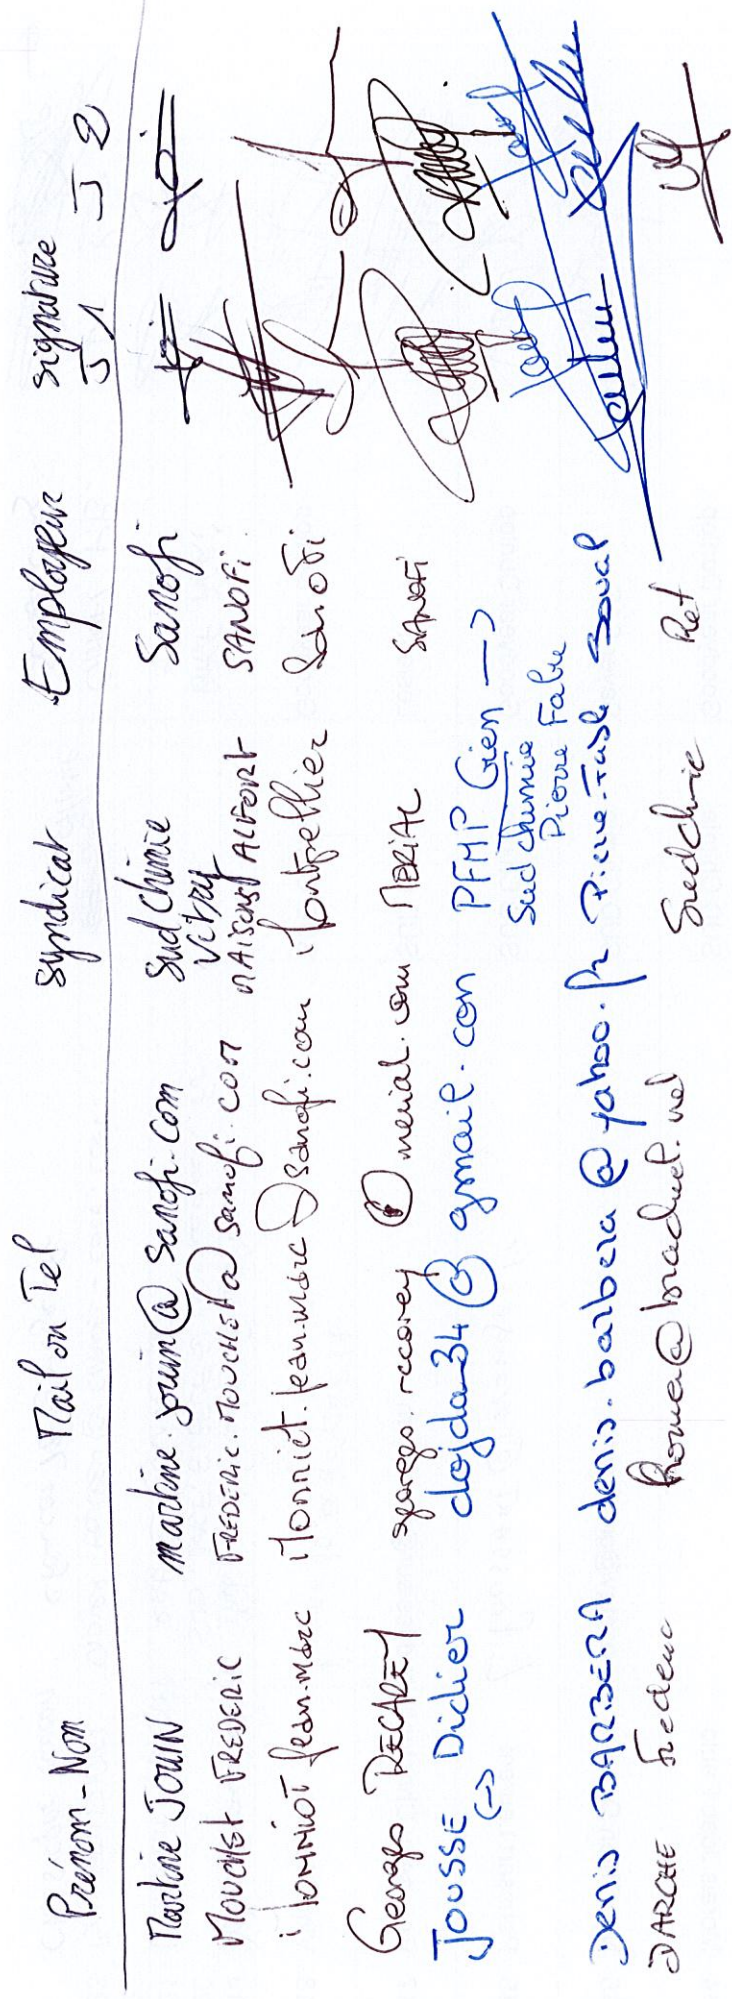 Prénom-Nom Mail ou Tel Syndicat Employeur Signature
J1 J2
Martine JOUIN martine.jouin@sanofi.com Sud Chimie Sanofi
Vitry
MOUCHET FREDERIC FREDERIC.MOUCHET@sanofi.com MAISONS ALFORT SANOFI.
Jean-Marc Jean-Marc@sanofi.com Montpellier Sanofi
Georges RECAREY georges.recarey@merial.com MERIAL SANOFI
JOUSSE Didier dojda34@gmail.com PFMP Gien →
(→) Sud Chimie
Pierre Fabre
Denis BARBERA denis.barbera@yahoo.fr Pierre-Fabre Soual
DARCHE Frederic Sudchimie